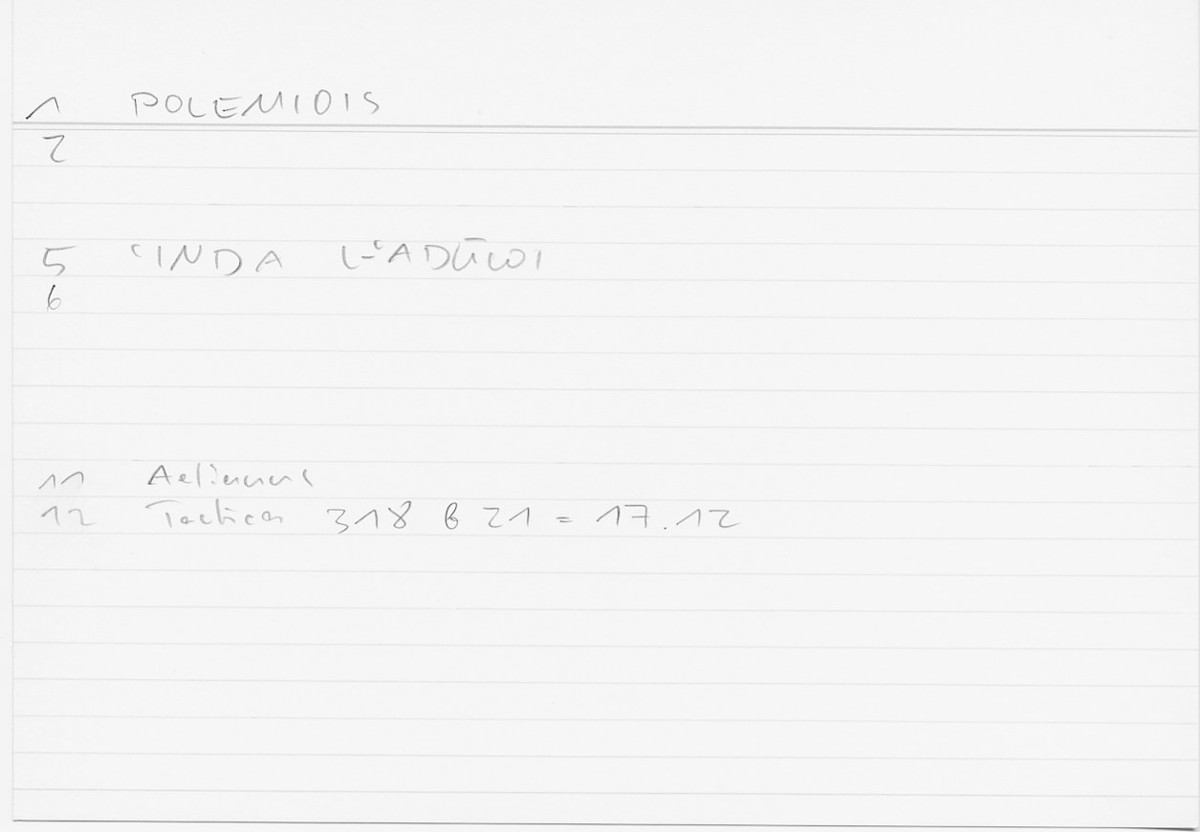 1 POLEMIOIS
2
5 ʿINDA L-ʿADŪWI
6
11 Aelianus
12 Tactica 318 b 21 = 17.12